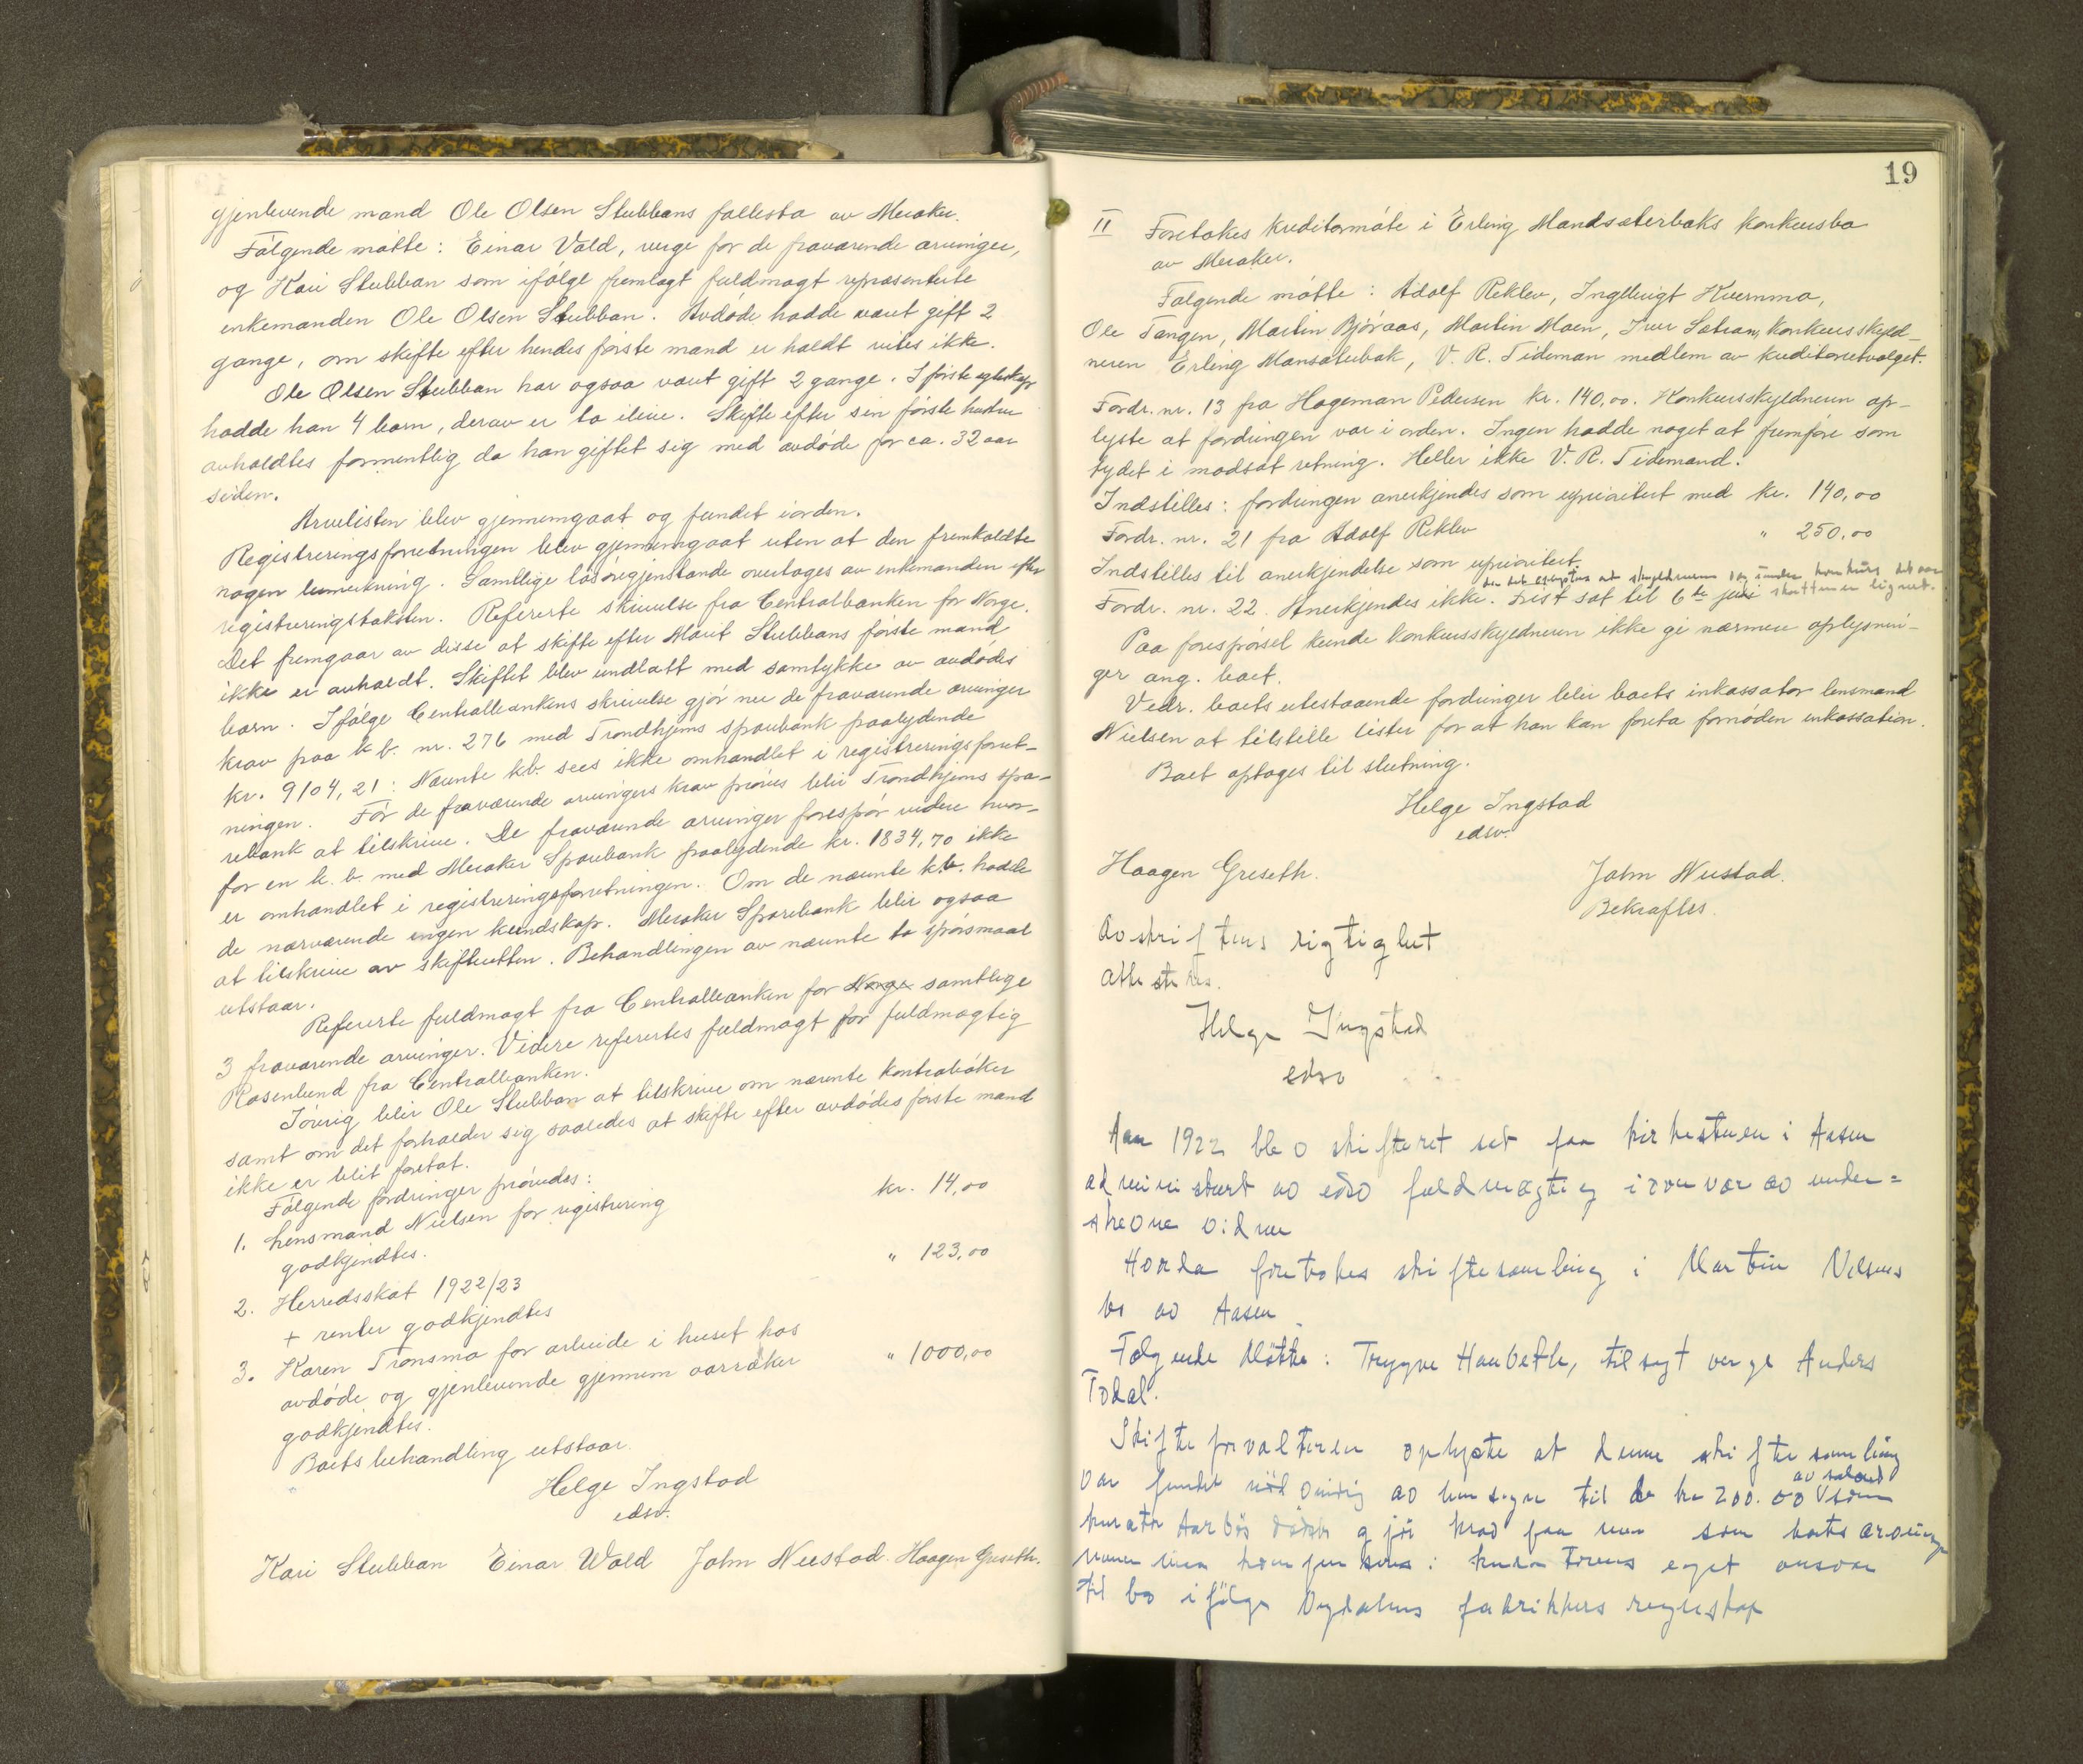 gjenlevende mand Ole Olsen Stubbans fællesbo av Meraker.
Følgende møtte: Einar Vold, verge for de fraværende arvinger,
og Kari Stubban som ifølge fremlagt fuldmagt repræsenterte
enkemanden Ole Olsen Stubban. Avdøde hadde været gift 2
gange, om skifte efter hendes første mand er holdt vites ikke.
Ole Olsen Stubban har ogsaa været gift 2 gange. I første egteskap
hadde han 4 barn, derav er to ilive. Skifte efter sin første hustru
avholdtes formentlig da han giftet sig med avdøde for ca. 32 aar
siden.
Arvelisten blev gjennemgaat og fundet iorden.
Registreringsforretningen blev gjennemgaat uten at den fremkaldte
nogen bemerkning. Samtlige løsøregjenstande overtages av enkemanden efter
registreringstaksten. Refererte skrivelse fra Centralbanken for Norge.
Det fremgaar av disse at skifte efter Marit Stubbans første mand
ikke er avholdt. Skiftet blev undlatt med samtykke av avdødes
barn. Ifølge Centralbankens skrivelse gjør nu de fraværende arvinger
krav paa k.b. nr. 276 med Trondhjems sparebank paalydende
kr. 9104,21: Nævnte kb. sees ikke omhandlet i registreringsforret-
ningen. Før de fraværende arvingers krav prøves blir Trondhjems spa-
rebank at tilskrive. De fraværende arvinger forespør videre hvor-
for en k.b. med Meraker Sparebank paalydende kr. 1834,70 ikke
er omhandlet i registreringsforretningen. Om de nævnte k.b. hadde
de nærværende ingen kundskap. Meraker Sparebank blir ogsaa
at tilskrive av skifteretten. Behandlingen av nævnte to spørsmaal
utstaar.
Refererte fuldmagt fra Centralbanken for Norge samtlige
3 fraværende arvinger. Videre referertes fuldmagt for fuldmægtig
Rosenlund fra Centralbanken.
Iøvrig blir Ole Stubban at tilskrive om nævnte kontrabøker
samt om det forholder sig saaledes at skifte efter avdødes første mand
ikke er blit foretat.
Følgende fordringer prøvedes:
1. Lensmand Nielsen for registrering kr. 14,00
godkjendtes.
2. Herredsskat 1922/23 " 123,00
+ renter godkjendtes
3. Karen Tronsmo for arbeide i huset hos
avdøde og gjenlevende gjennem aarrækker " 1000,00
godkjendtes.
Boets behandling utstaar.
Helge Ingstad
edsv.
Kari Stubban Einar Wold John Neestad Haagen Greseth.
19
II Foretokes kreditormøte i Erling Mandsæterbaks konkursbo
av Meraker.
Følgende møtte: Adolf Reklev, Kvernmo,
Ole Tangen, Martin Bjøraas, Martin Moen, Iver Sætran, konkursskyld-
neren Erling Mansæterbak, V. R. Tideman medlem av kreditorutvalget.
Fordr. nr. 13 fra Hageman Pedersen kr. 140,00. Konkursskyldneren op-
lyste at fordringen var i orden. Ingen hadde noget at fremføre som
tydet i modsat retning. Heller ikke V. R. Tidemand.
Indstilles: fordringen anerkjendes som uprioritert med kr. 140,00
Fordr. nr. 21 fra Adolf Reklev " 250,00
Indstilles til anerkjendelse som uprioritert.
da det oplystes at skyldneren var under konkurs det aar
Fordr. nr. 22. Anerkjendes ikke. Frist sat til 6te juni skatten er lignet.
Paa forespørsel kunde konkursskyldneren ikke gi nærmere oplysnin-
ger ang. boet.
Vedr. boets utestaaende fordringer blir boets inkassator lensmand
Nielsen at tilstille lister for at han kan foreta fornøden inkassation.
Boet optoges til slutning.
Helge Ingstad
edsv.
Haagen Greseth. John Neestad.
Bekræftes.
Avskriftens rigtighet
attesteres.
Helge Ingstad
edsv
Aar 1922 blev skifteret sat paa kirkestuen i Aasen
administrert av edsv fuldmægtig i overvær av under=
skrevne vidner
Herda foretokes skiftesamling i Martin Nilsens
bo av Aasen.
Følgende Møtte: Trygve Haubeth, tilsagt verge Anders
Todal.
Skifteforvalteren oplyste at denne skiftesamling
av salæret
var fundet nødvendig av hensyn til de kr 200.00 som
kurator Aarbös gjør krav paa som boets
kuratorens eget ansvar
til bo ifølge fabrikkers regnskap